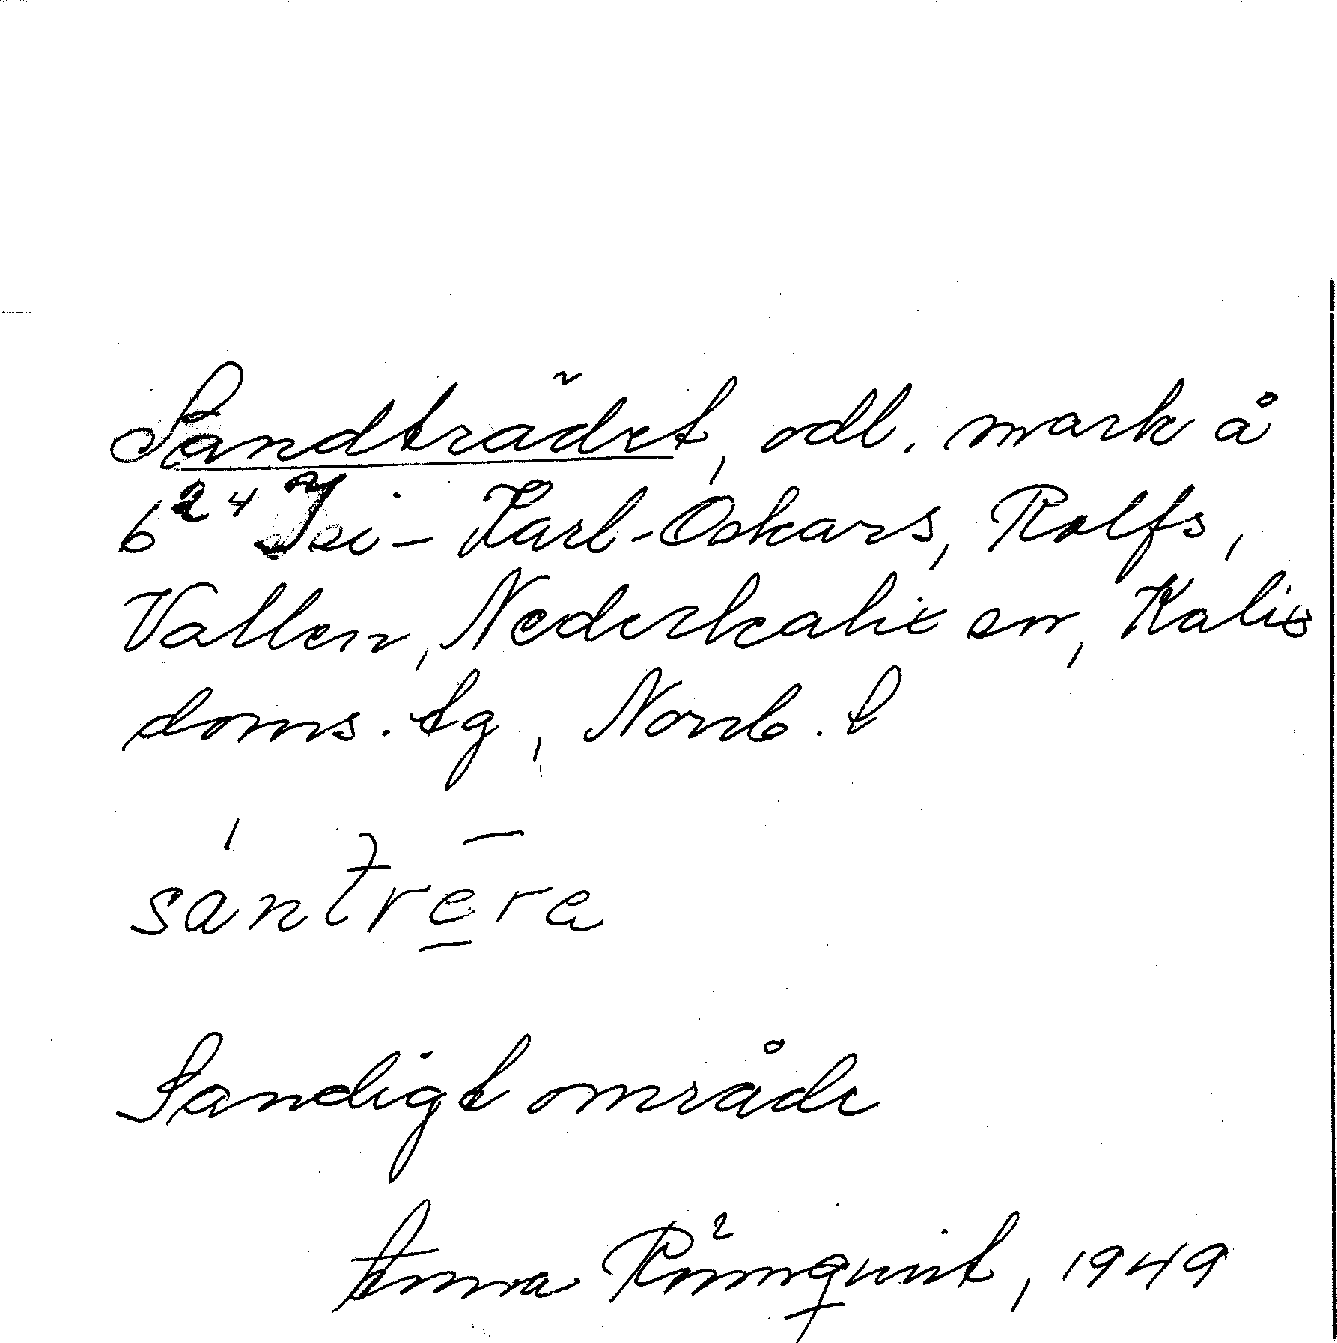 Sandträdet, odl. mark å
6²⁴ Isi-Karl-Oskars, Rolfs,
Vallen, Nederkalix sn, Kalix
doms. tg, Norrb. l
sántrēra
Sandigt område
Anna Römqvist, 1949